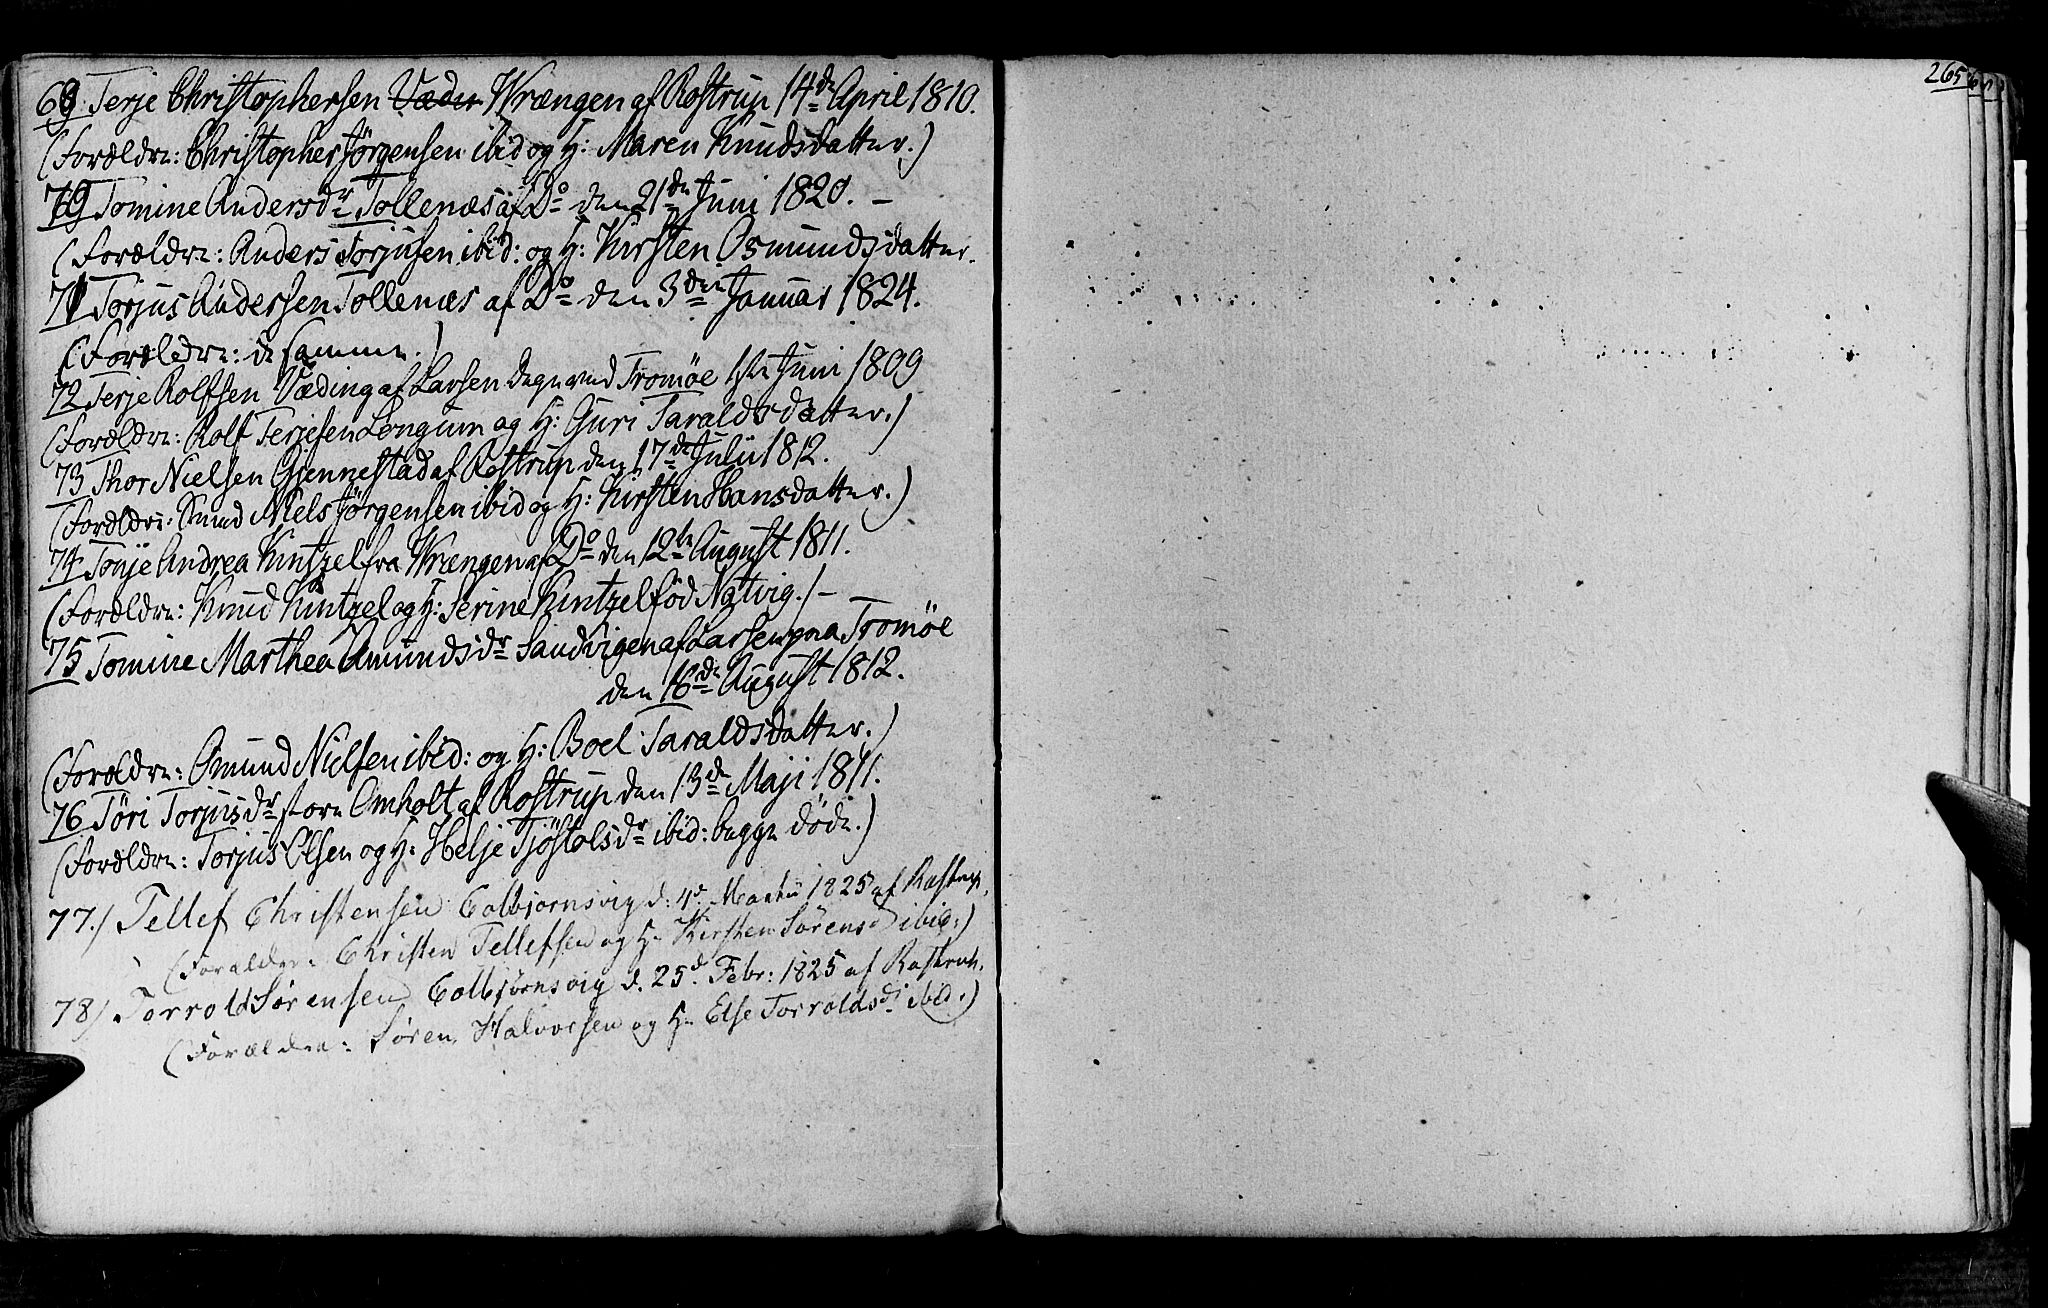 69 Terje Christophersen Væden Wrængen af Rostrup 14de April 1810.
(Forældre: Christopher Jørgensen ibid og H: Maren Knudsdatter.)
70 Tomine Andersdr Tollenæs af Do den 21de Juni 1820. –
(Forældre: Anders Torjusen ibid: og H: Kirsten Osmundsdatter.
71 Torjus Andersen Tollenæs af Do den 3die Januar 1824.
(Forældre: de samme.)
72 Terje Rolfsen Væding af Larsen Degn ved Tromøe 1ste Juni 1809
(Forældre: Rolf Terjesen Longum og H: Guri Taraldsdatter.)
73 Thor Nielsen Gjennestad af Rostrup den 17de Julii 1812.
(Forældre: Niels Jørgensen ibid og H: Kirsten Hansdatter.)
74 Tonje Andrea Kintzel fra Wrængen af Do den 12te August 1811.
(Forældre: Knud Kintzel og H: Serine Kintzel fød Natvig.) –
75 Tomine Marthea Omundsdr Sandvigen af Larsen paa Tromøe
den 16de August 1812.
(Forældre: Omund Nielsen ibid: og H: Boel Taraldsdatter.)
76 Tøri Torjusdr store Omholt af Rostrup den 13de Maji 1811.
(Forældre: Torjus Olsen og H: Helje Tjøstolsdr ibid: begge døde.)
77.) Tellef Christensen Colbjørnsvig d: 4de Martii 1825 af Rostrup.
(Forældre: Christen Tellefsen og H: Kirsten Sørensd ibid:)
78) Torrold Sørensen Colbjørnsvig d. 25d. Febr: 1825 af Rostrup.
(Forældre: Søren Halvorsen og H: Else Torroldsd: ibid.)
265